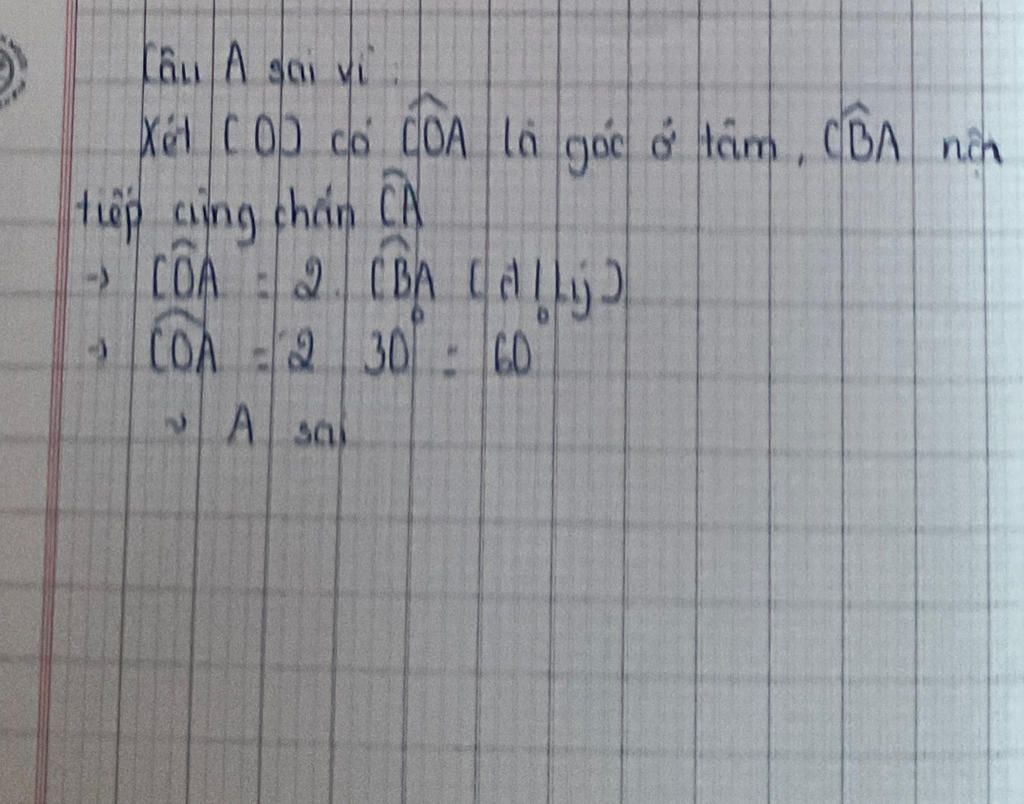 Câu A sai vì:
Xét (O) có \widehat{COA} là góc ở tâm, \widehat{CBA} nội
tiếp cùng chắn \overset{\frown}{CA}
→ \widehat{COA} = 2. \widehat{CBA} (đ!lý)
→ \widehat{COA} = 2 30° = 60°
A sai